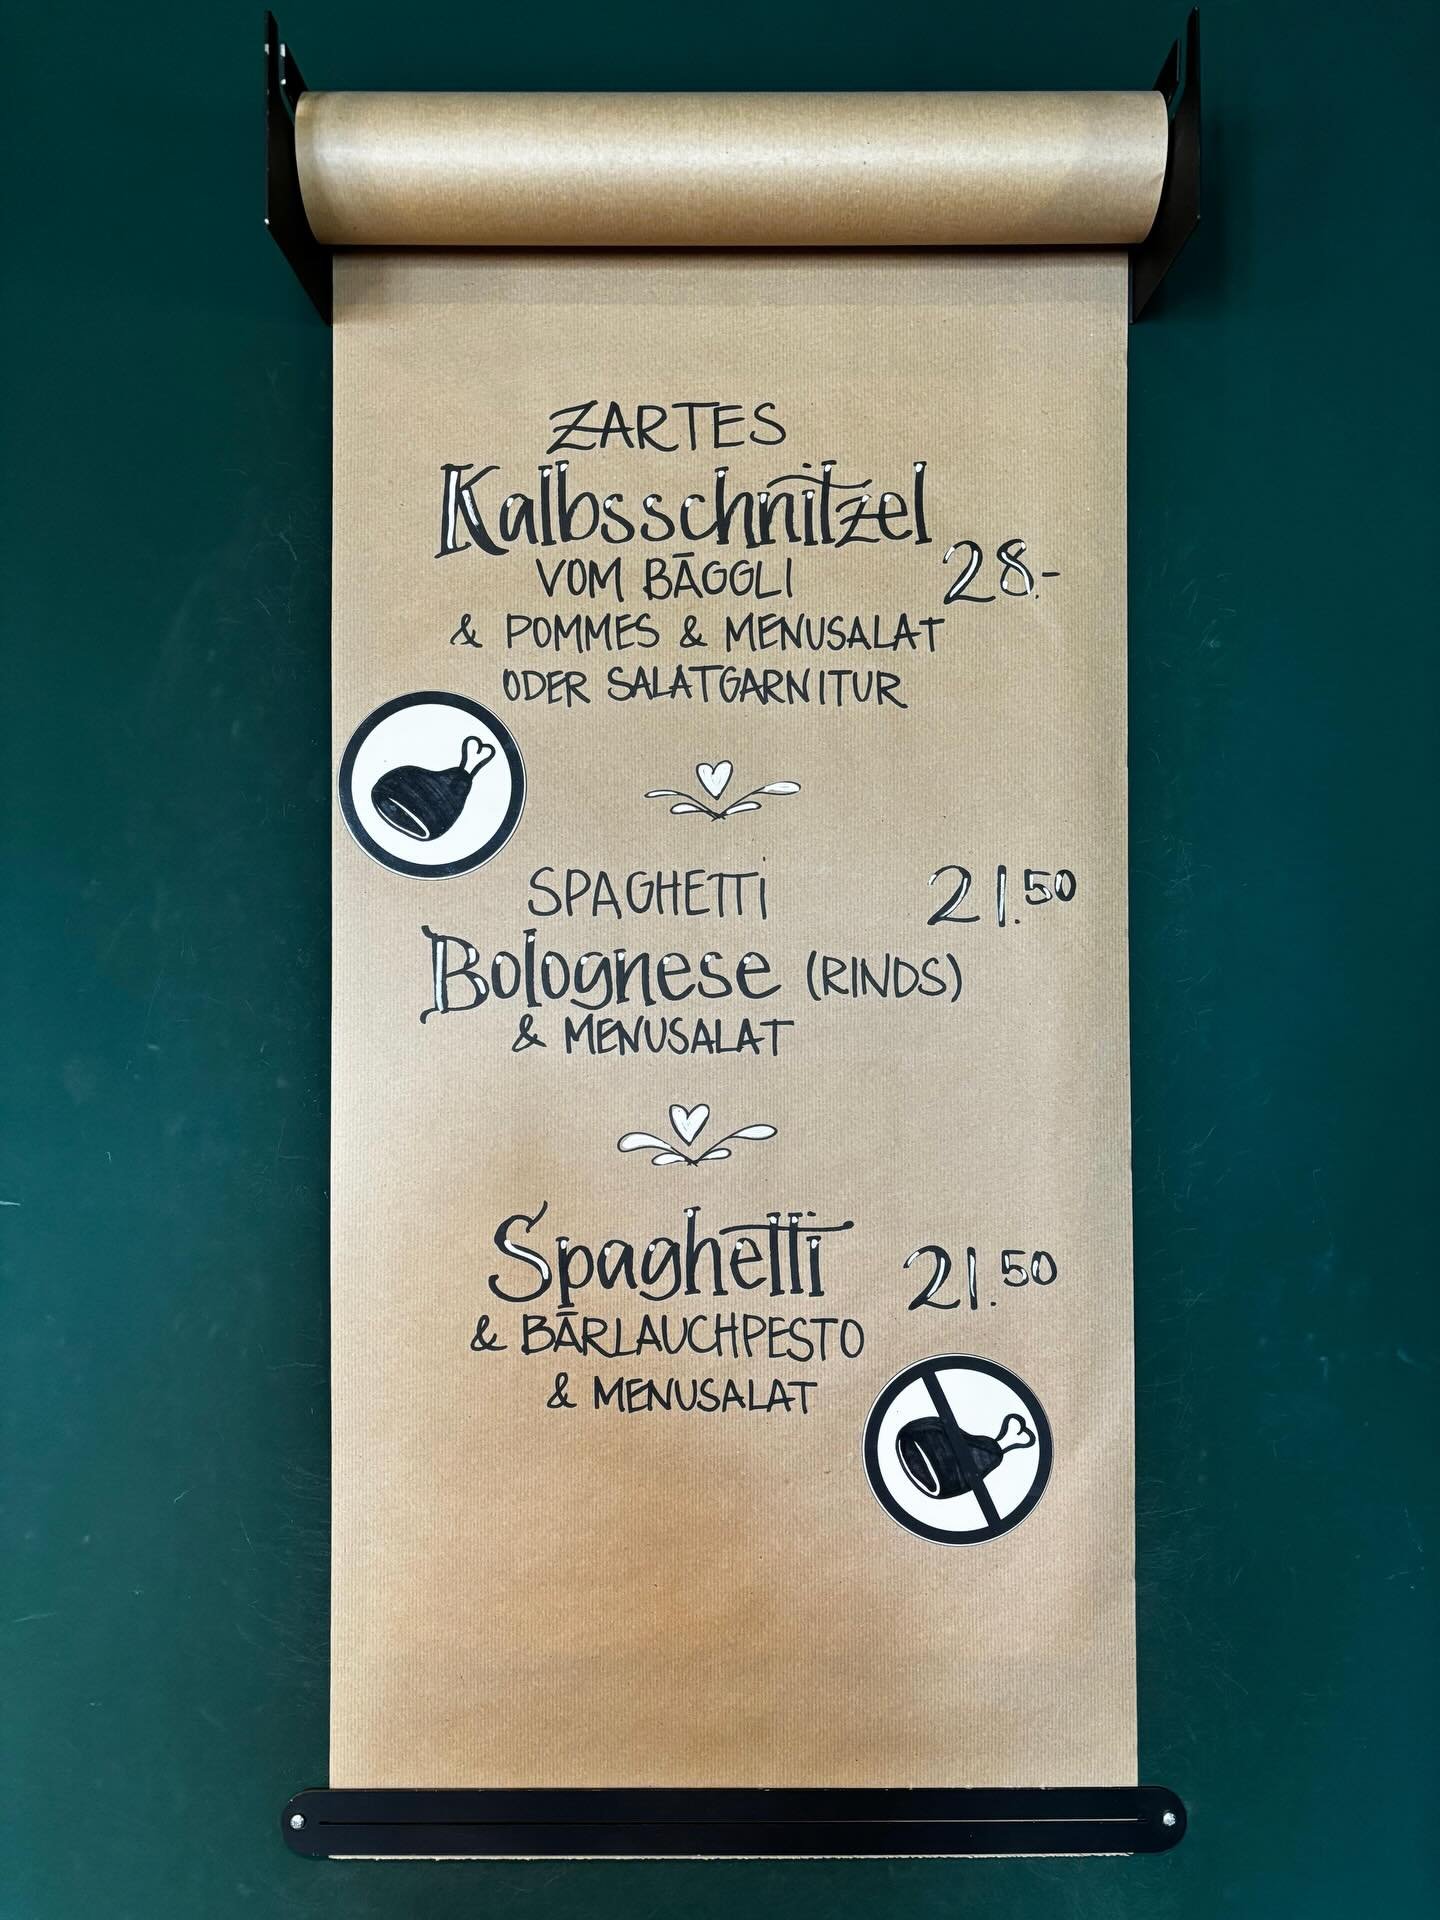 ZARTES
Kalbsschnitzel
VOM BÄGGLI 28.-
& POMMES & MENUSALAT
ODER SALATGARNITUR
SPAGHETTI 21.50
Bolognese (RINDS)
& MENUSALAT
Spaghetti 21.50
& BÄRLAUCHPESTO
& MENUSALAT